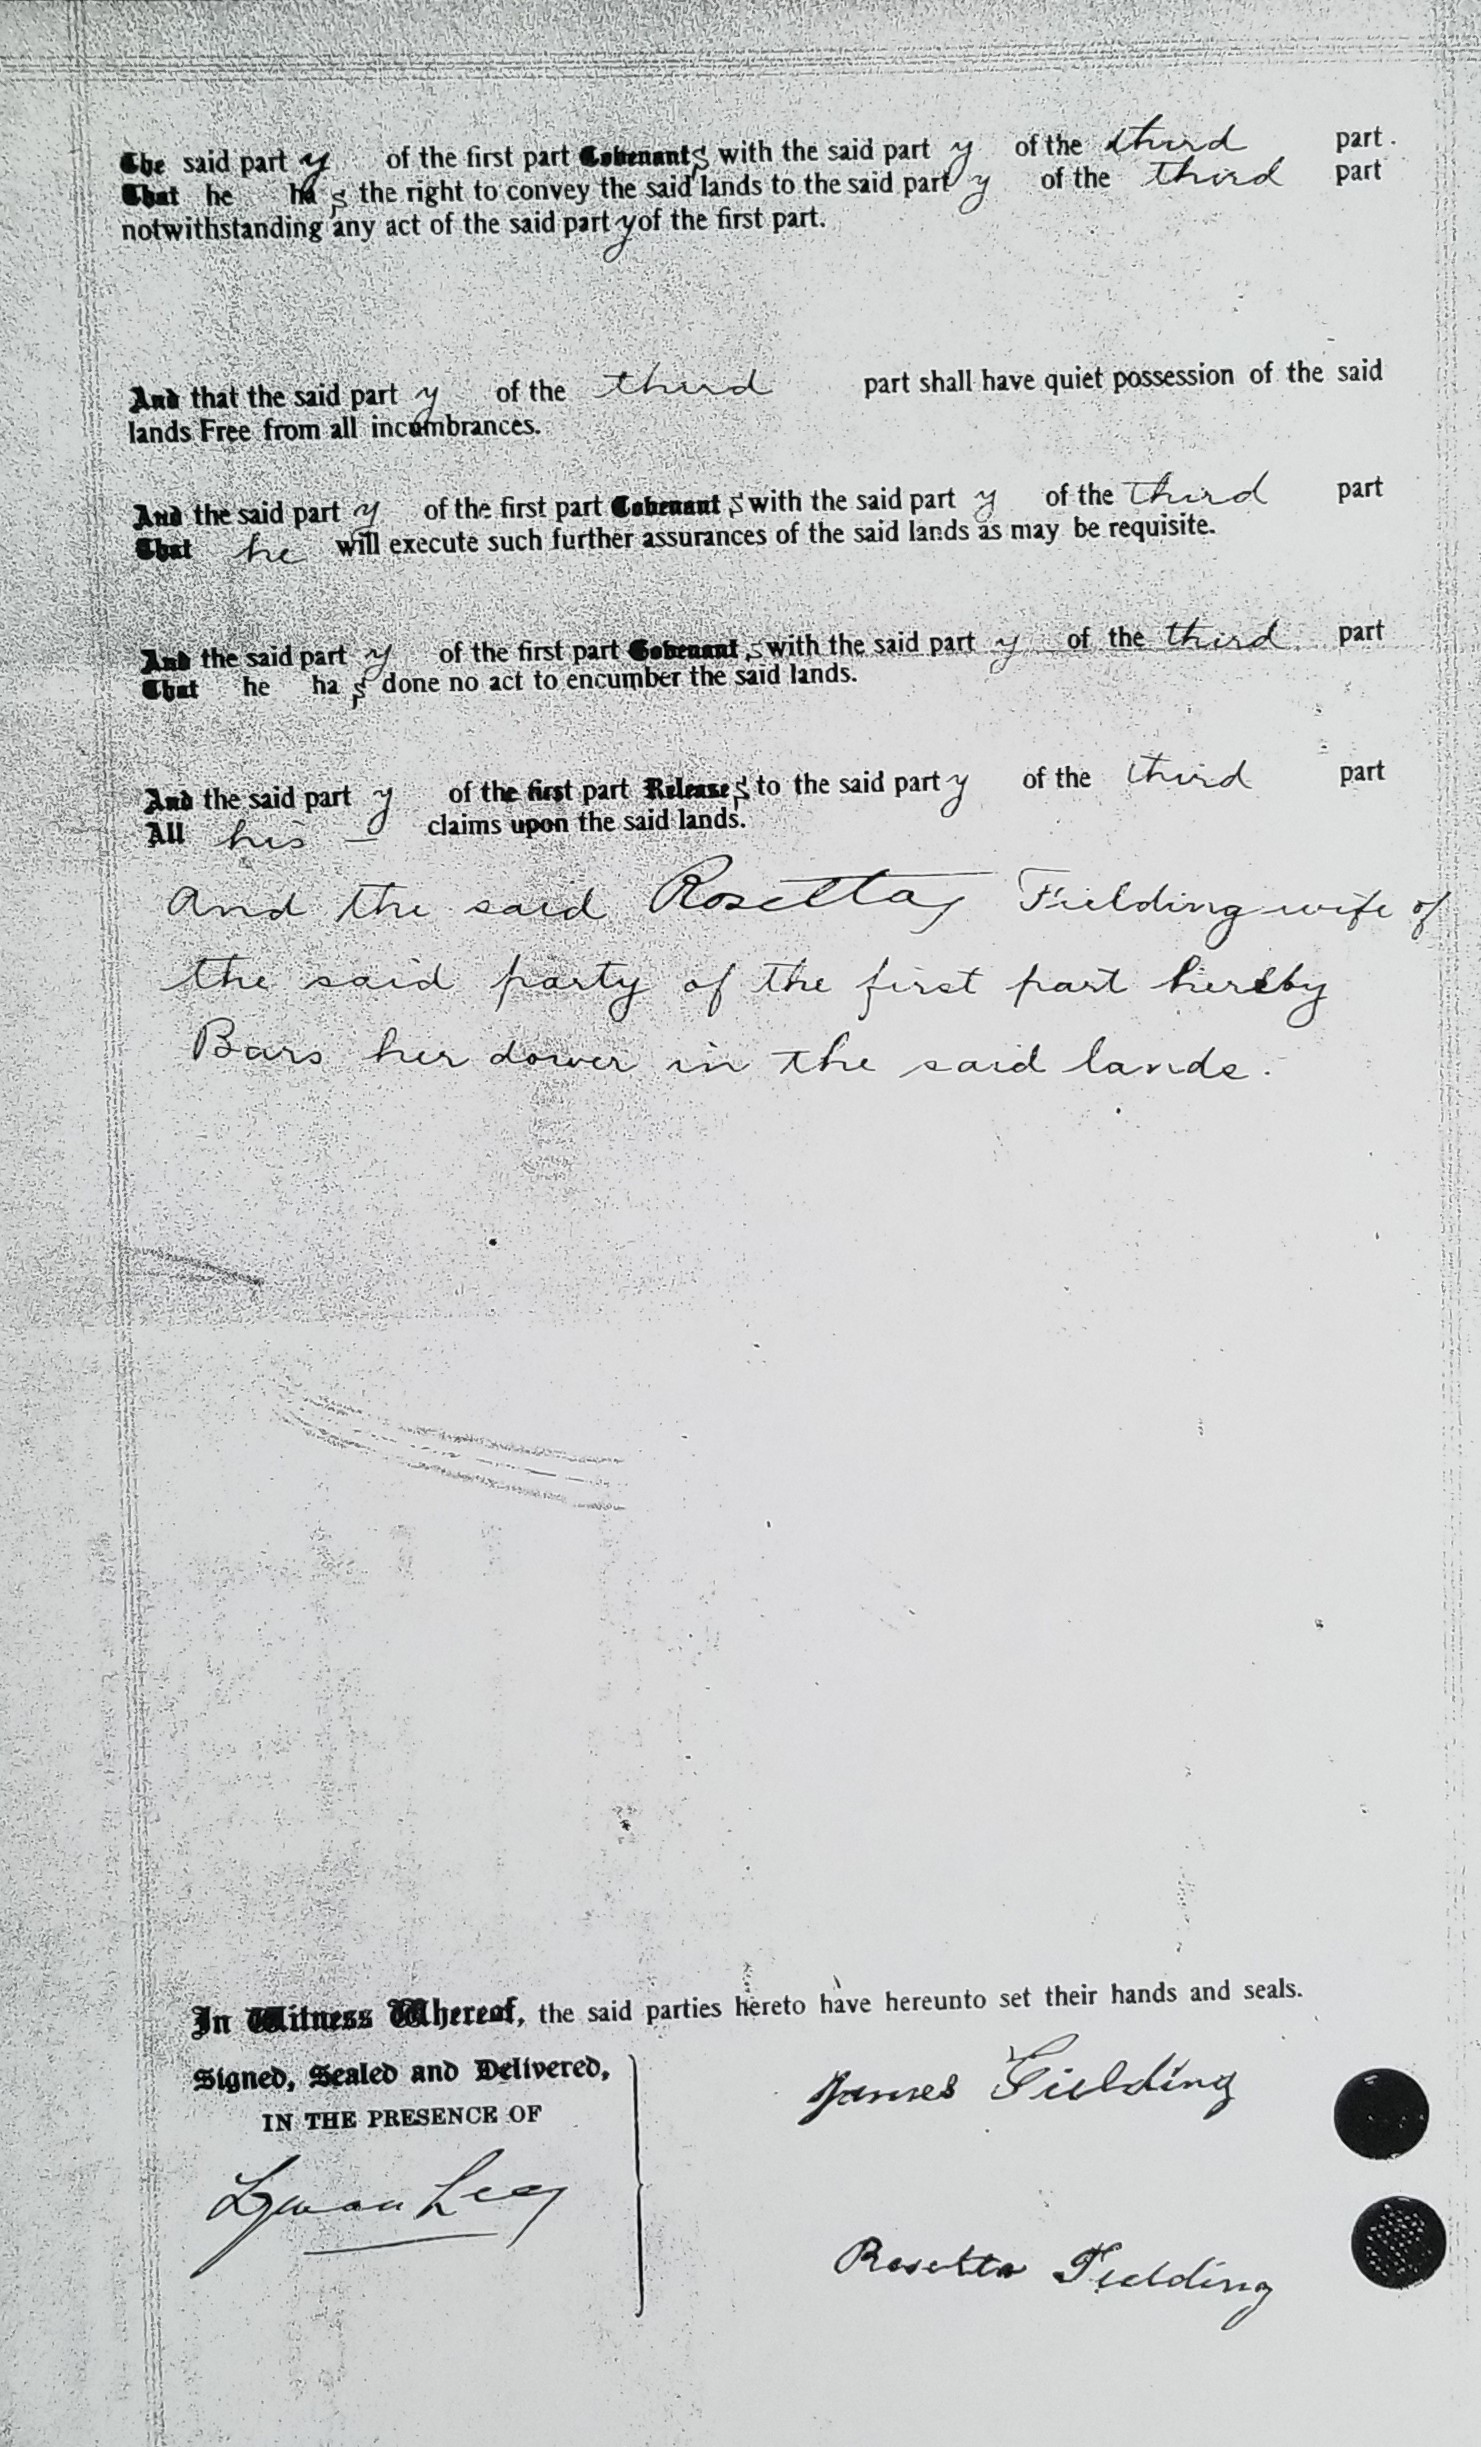 The said party of the first part Covenants with the said party of the third part.
That he has the right to convey the said lands to the said party of the third part
notwithstanding any act of the said party of the first part.
And that the said party of the third part shall have quiet possession of the said
lands Free from all incumbrances.
And the said party of the first part Covenants with the said party of the third part
That he will execute such further assurances of the said lands as may be requisite.
And the said party of the first part Covenants with the said party of the third part
That he has done no act to encumber the said lands.
And the said party of the first part Releases to the said party of the third part
All his — claims upon the said lands.
And the said Rosetta Fielding wife of
the said party of the first part hereby
Bars her dower in the said lands.
In Witness Whereof, the said parties hereto have hereunto set their hands and seals.
Signed, Sealed and Delivered,
IN THE PRESENCE OF
James Fielding
Lyman Lee
Rosetta Fielding